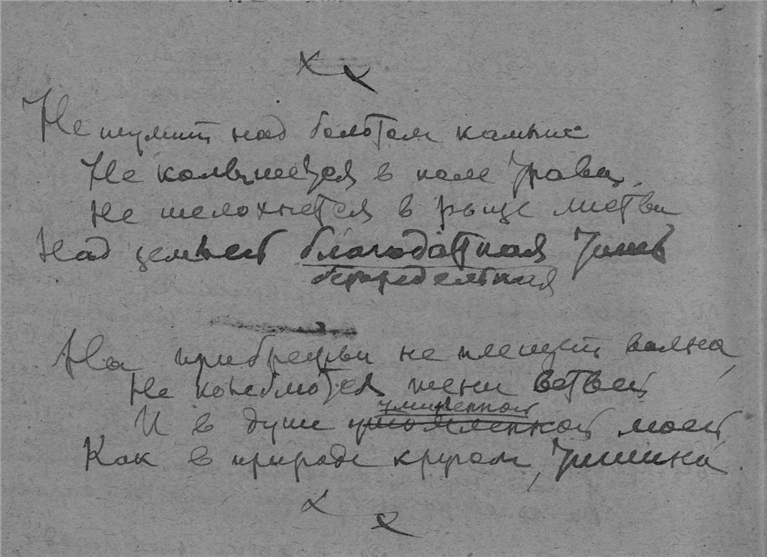 Не шумит над болотом камыш
Не колышется в поле трава,
Не шелохнется в роще листва
Над землей благодатная тишь
беспредельная
На прибрежьи не плещет волна,
Не колеблются тени ветвей
умиленной
И в душе утомленной моей
Как в природе кругом, тишина.